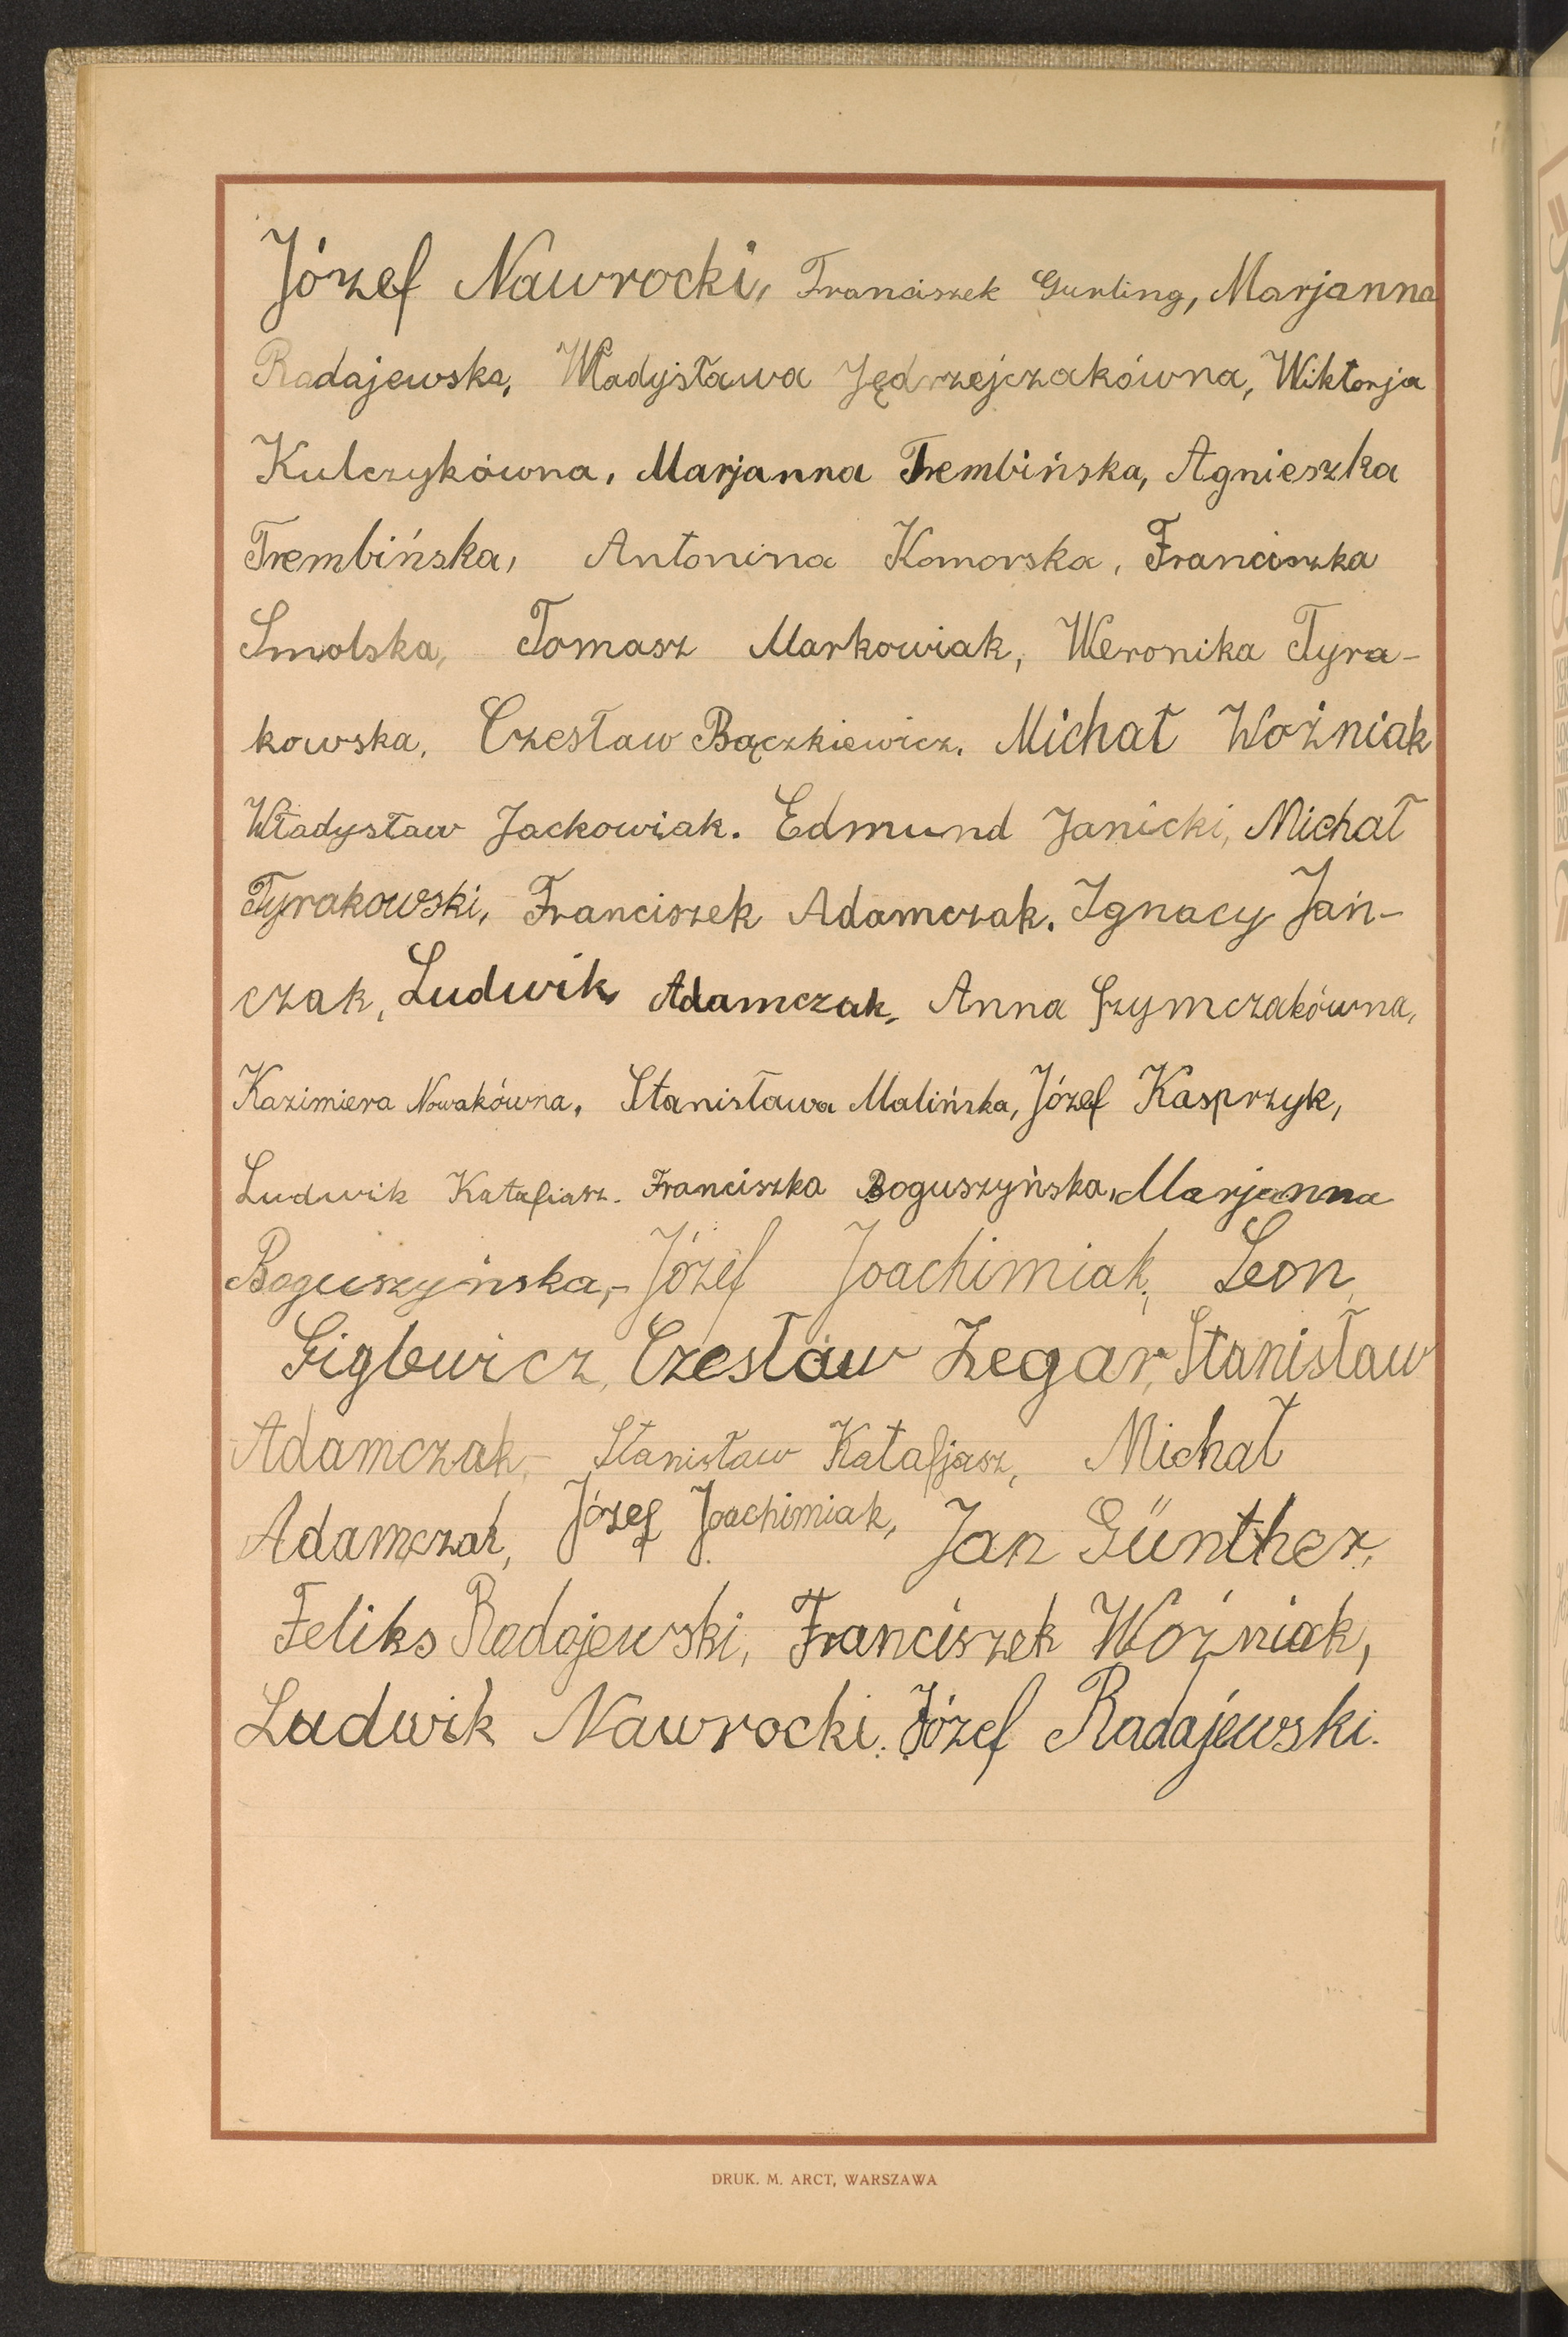 Józef Nawrocki, Franciszek Gurling, Marjanna
Radajewska, Władysława Jędrzejczakówna, Wiktorja
Kulczykówna, Marjanna Trembińska, Agnieszka
Trembińska, Antonina Komorska, Franciszka
Smolska, Tomasz Markowiak, Weronika Tyra-
kowska, Czesław Bączkiewicz, Michał Woźniak
Władysław Jackowiak. Edmund Janicki, Michał
Tyrakowski, Franciszek Adamczak. Ignacy Jań-
czak, Ludwik Adamczak, Anna Szymczakówna,
Kazimiera Nowakówna, Stanisława Malińska, Józef Kasprzyk,
Ludwik Katafiasz. Franciszka Boguszyńska, Marjanna
Boguszyńska,- Józef Joachimiak, Leon
Giglewicz, Czesław Zegar, Stanisław
Adamczak,- Stanisław Katafjasz, Michał
Adamczak, Józef Joachimiak, Jan Günther,
Feliks Radajewski, Franciszek Woźniak,
Ludwik Nawrocki. Józef Radajewski.
DRUK. M. ARCT, WARSZAWA